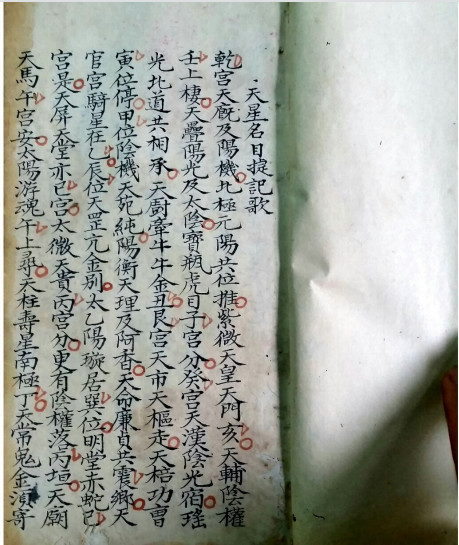 天星名目捷記歌
乾宮天廐及陽機北極元陽共位推紫微天皇天門亥天輔陰權
壬上棲天疊陽光及太陰寶瓶虎目子宮分癸宮天漢陰光宿瑤
光北道共相承天廚牽牛牛金丑艮宮天市天樞走天棓功曹
寅位停甲位陰機天苑純陽衡天理及阿香天命廉貞共震鄉天
官宮騎星在乙辰位天罡亢金別太乙陽璇居巽位明堂亦蛇巳
宮是天屏天堂亦巳宮太微天貴丙宮分更有陰權落丙垣天廟
天馬午宮安太陽游魂午上尋天柱壽星南極丁天常鬼金須寄